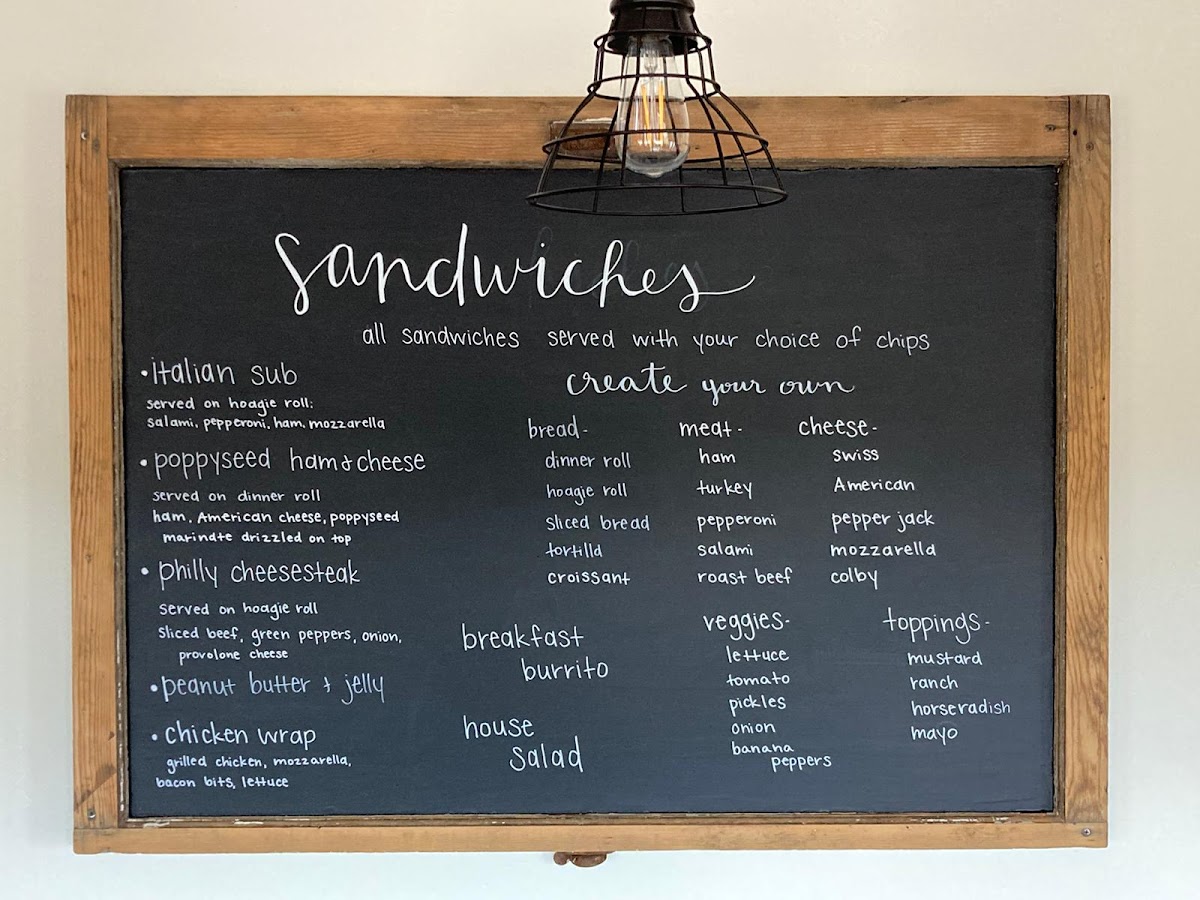 sandwiches
all sandwiches served with your choice of chips
• italian sub
served on hoagie roll:
salami, pepperoni, ham, mozzarella
• poppyseed ham & cheese
served on dinner roll
ham, American cheese, poppyseed
marinate drizzled on top
• philly cheesesteak
served on hoagie roll
sliced beef, green peppers, onion,
provolone cheese
• peanut butter + jelly
• chicken wrap
grilled chicken, mozzarella,
bacon bits, lettuce
create your own
bread-
dinner roll
hoagie roll
sliced bread
tortilla
croissant
meat-
ham
turkey
pepperoni
salami
roast beef
cheese-
swiss
American
pepper jack
mozzarella
colby
breakfast
burrito
house
salad
veggies-
lettuce
tomato
pickles
onion
banana
peppers
toppings-
mustard
ranch
horseradish
mayo